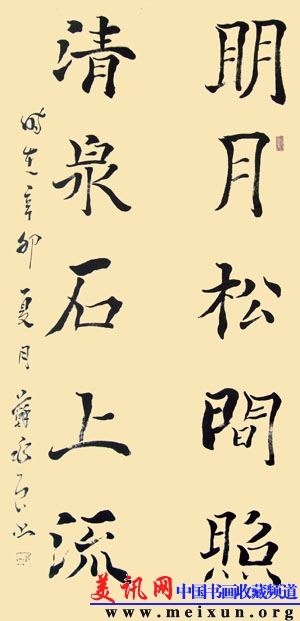 明月松間照
清泉石上流
時在辛卯夏月蘇
美讯网 中国书画收藏频道
www.meixun.org